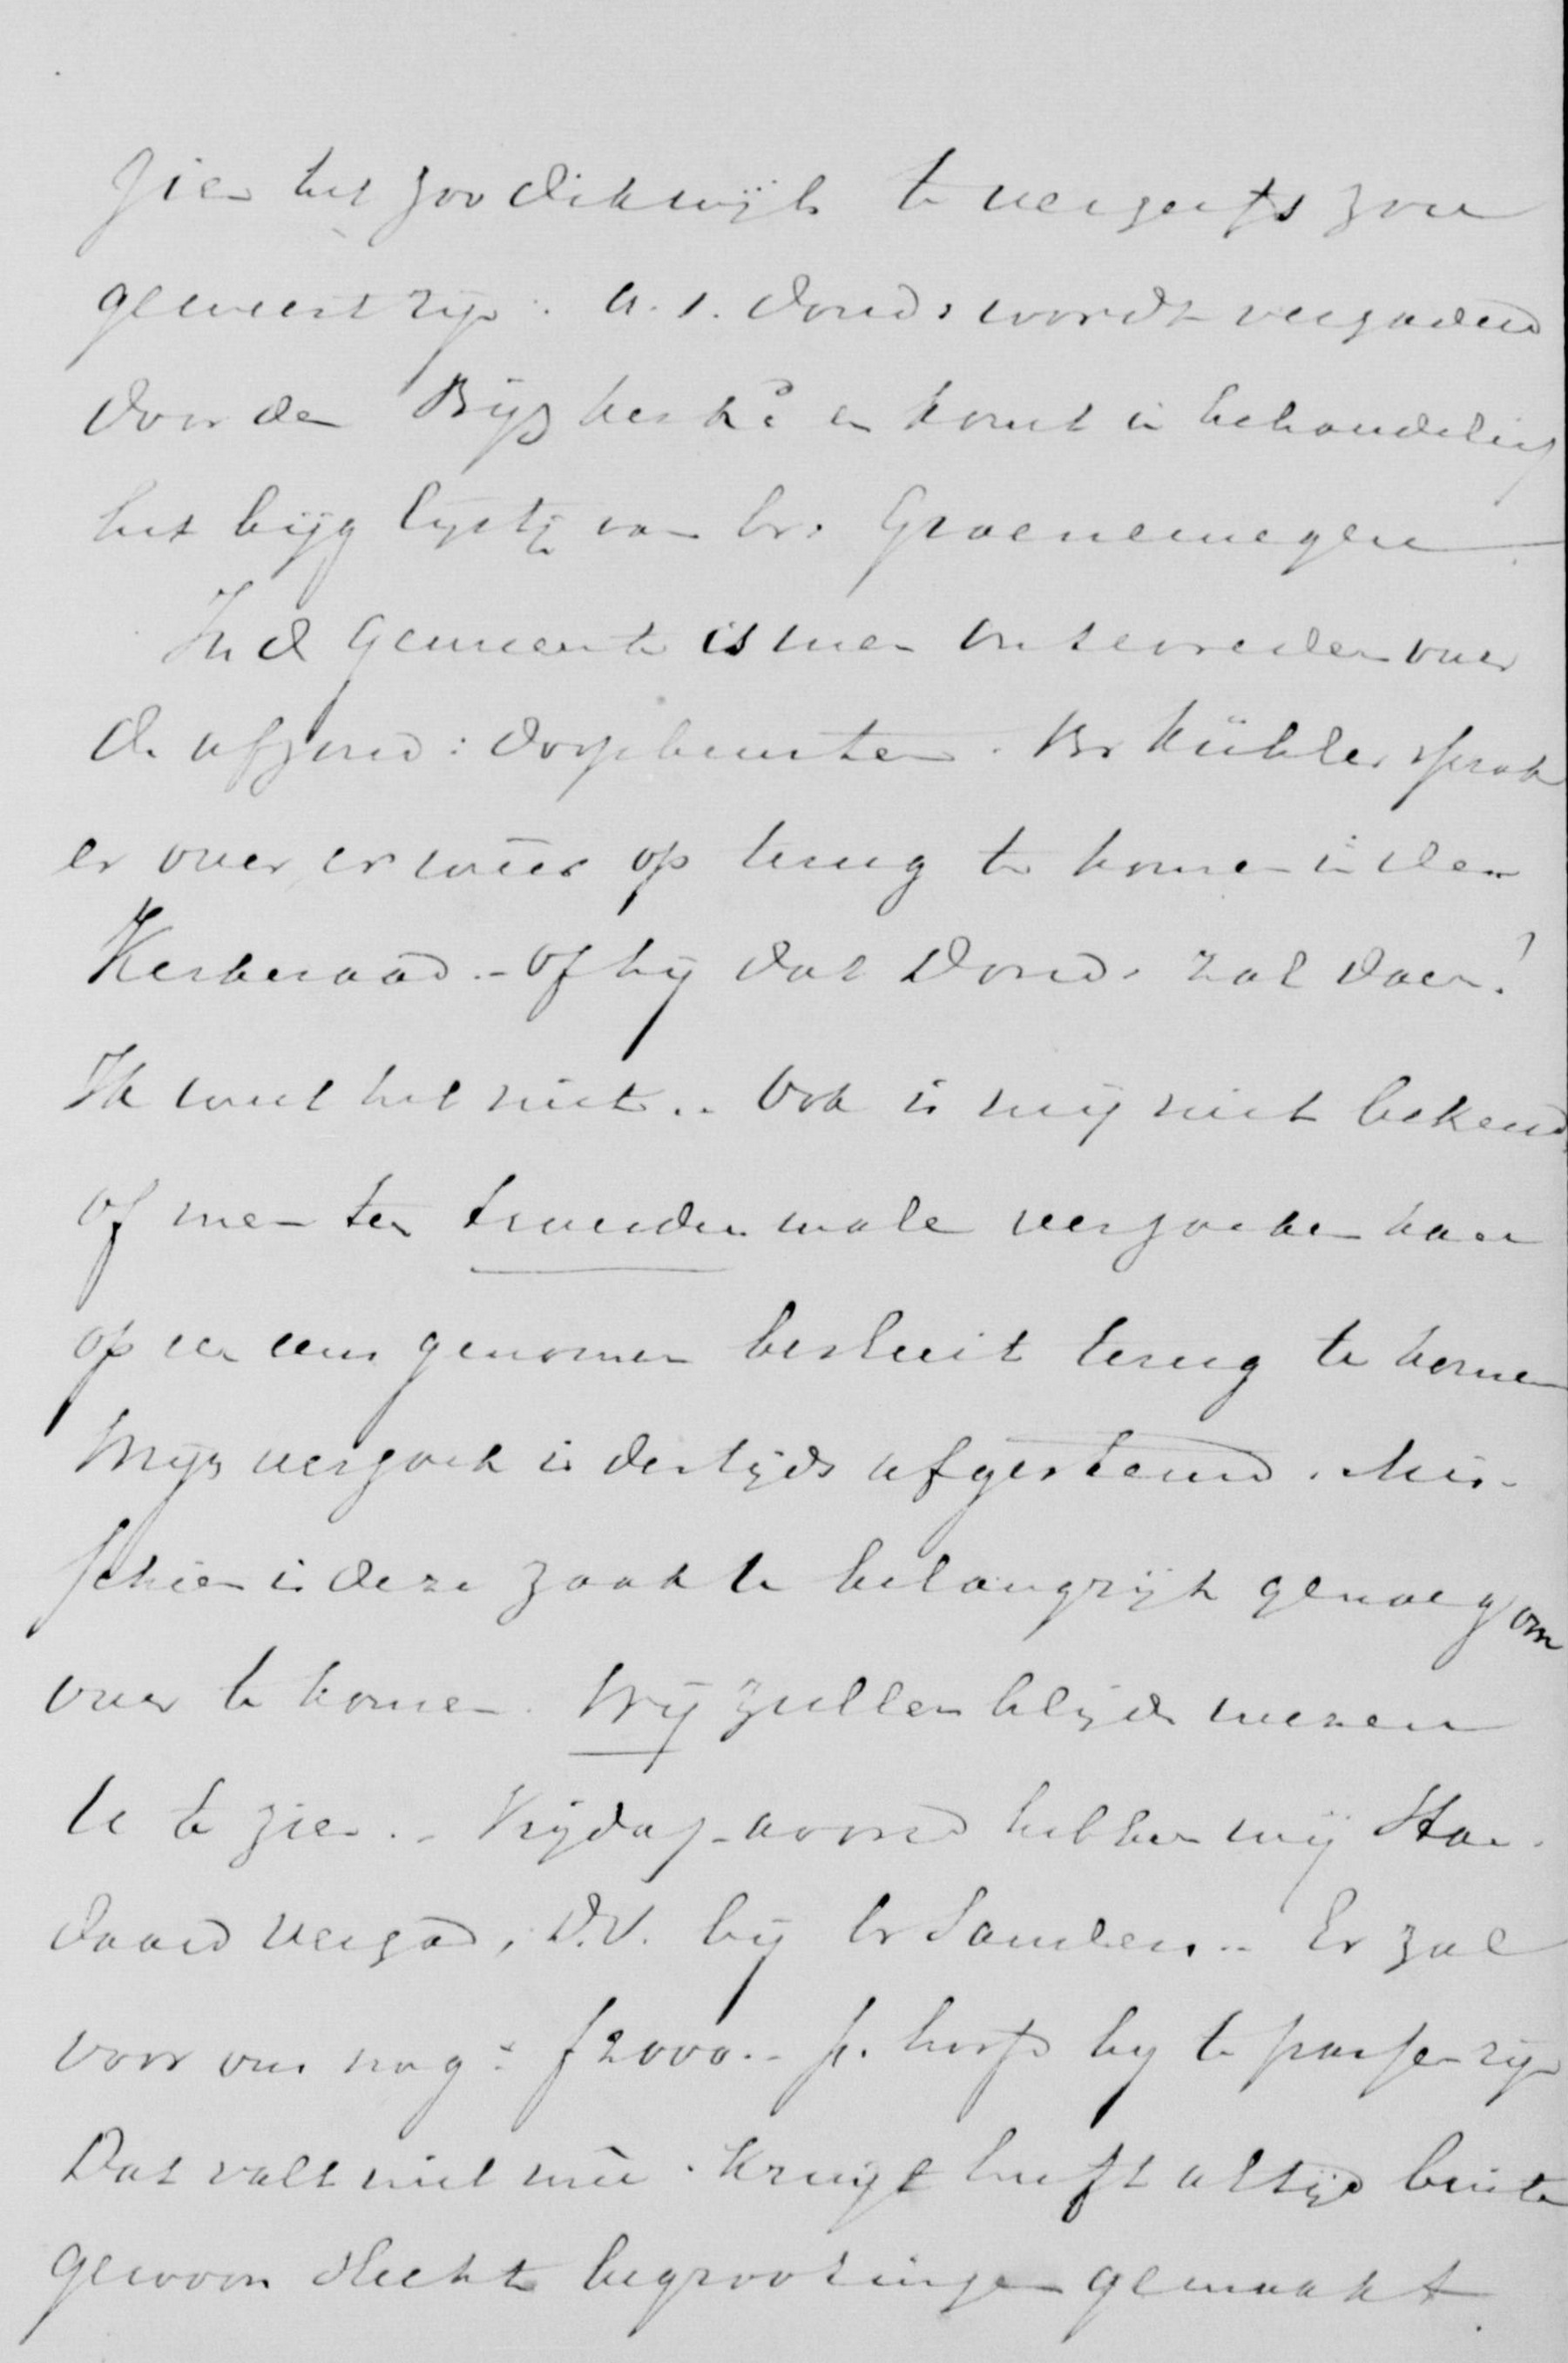 zien het zoo dikwijls te vergeefs zou
geweest zijn. a.s. Dond: wordt vergaderd
door den Bijz kerk: en komt in behandeling
het bijg lijstje van br. Groenewegen
In de Gemeente is men ontevreden over
de afzond: doopbeurten. Br Kühler sprak
er over er weêr op terug te komen in den
Kerkeraad. - Of hij dat Dond. zal doen?
Ik weet het niet.. Ook is mij niet bekend
of men ten tweeden male verzoeken kan
op een eens genomen besluit terug te komen
Mijn verzoek is destijds afgestemd. Mis-
schien is deze zaak U belangrijk genoeg om
over te komen. Wij zullen blijde wezen
U te zien. - Vrijdag-avond hebben wij Stan-
daard vergad, D.V. bij br Sanders.. Er zal
voor ons nog ± f2000.- p. hoofd bij te passen zijn
Dat valt niet meê. Kruyt heeft altijd buiten
gewoon slechte begrootingen gemaakt.